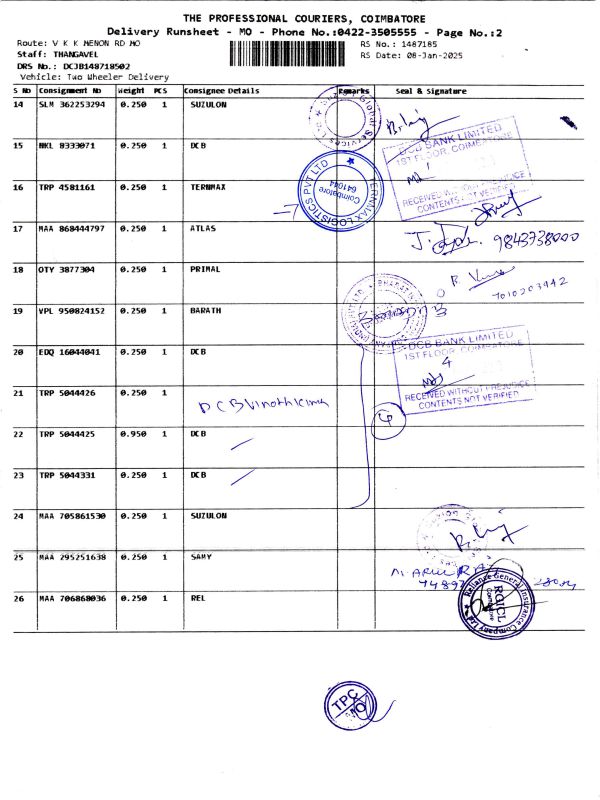 THE PROFESSIONAL COURIERS, COIMBATORE
Delivery Runsheet - MO - Phone No.:0422-3505555 - Page No.:2
Route: V K K MENON RD MO
RS No.: 1487185
Staff: THANGAVEL
RS Date: 08-Jan-2025
DRS No.: DCJB148718502
Vehicle: Two Wheeler Delivery
S No Consignment No Weight PCS Consignee Details Remarks Seal & Signature
14 SLM 362253294 0.250 1 SUZULON
Global Services
DCB BANK LIMITED
1ST FLOOR, COIMBATORE
RECEIVED WITHOUT PREJUDICE
CONTENTS NOT VERIFIED
15 NKL 8333071 0.250 1 DCB
16 TRP 4581161 0.250 1 TERNMAX
TERNMAX LOGISTICS PVT LTD
Coimbatore
641044
17 MAA 868444797 0.250 1 ATLAS
9843738000
18 OTY 3877304 0.250 1 PRIMAL
7010203942
19 VPL 950824152 0.250 1 BARATH
20 EDQ 16044041 0.250 1 DCB
DCB BANK LIMITED
1ST FLOOR, COIMBATORE
4
RECEIVED WITHOUT PREJUDICE
CONTENTS NOT VERIFIED
21 TRP 5044426 0.250 1
DCB Vinothkumar
22 TRP 5044425 0.950 1 DCB
23 TRP 5044331 0.250 1 DCB
24 MAA 705861530 0.250 1 SUZULON
25 MAA 295251638 0.250 1 SAMY
26 MAA 706868036 0.250 1 REL
Reliance General Insurance Company Ltd
RGICL
Coimbatore
TPC
MO